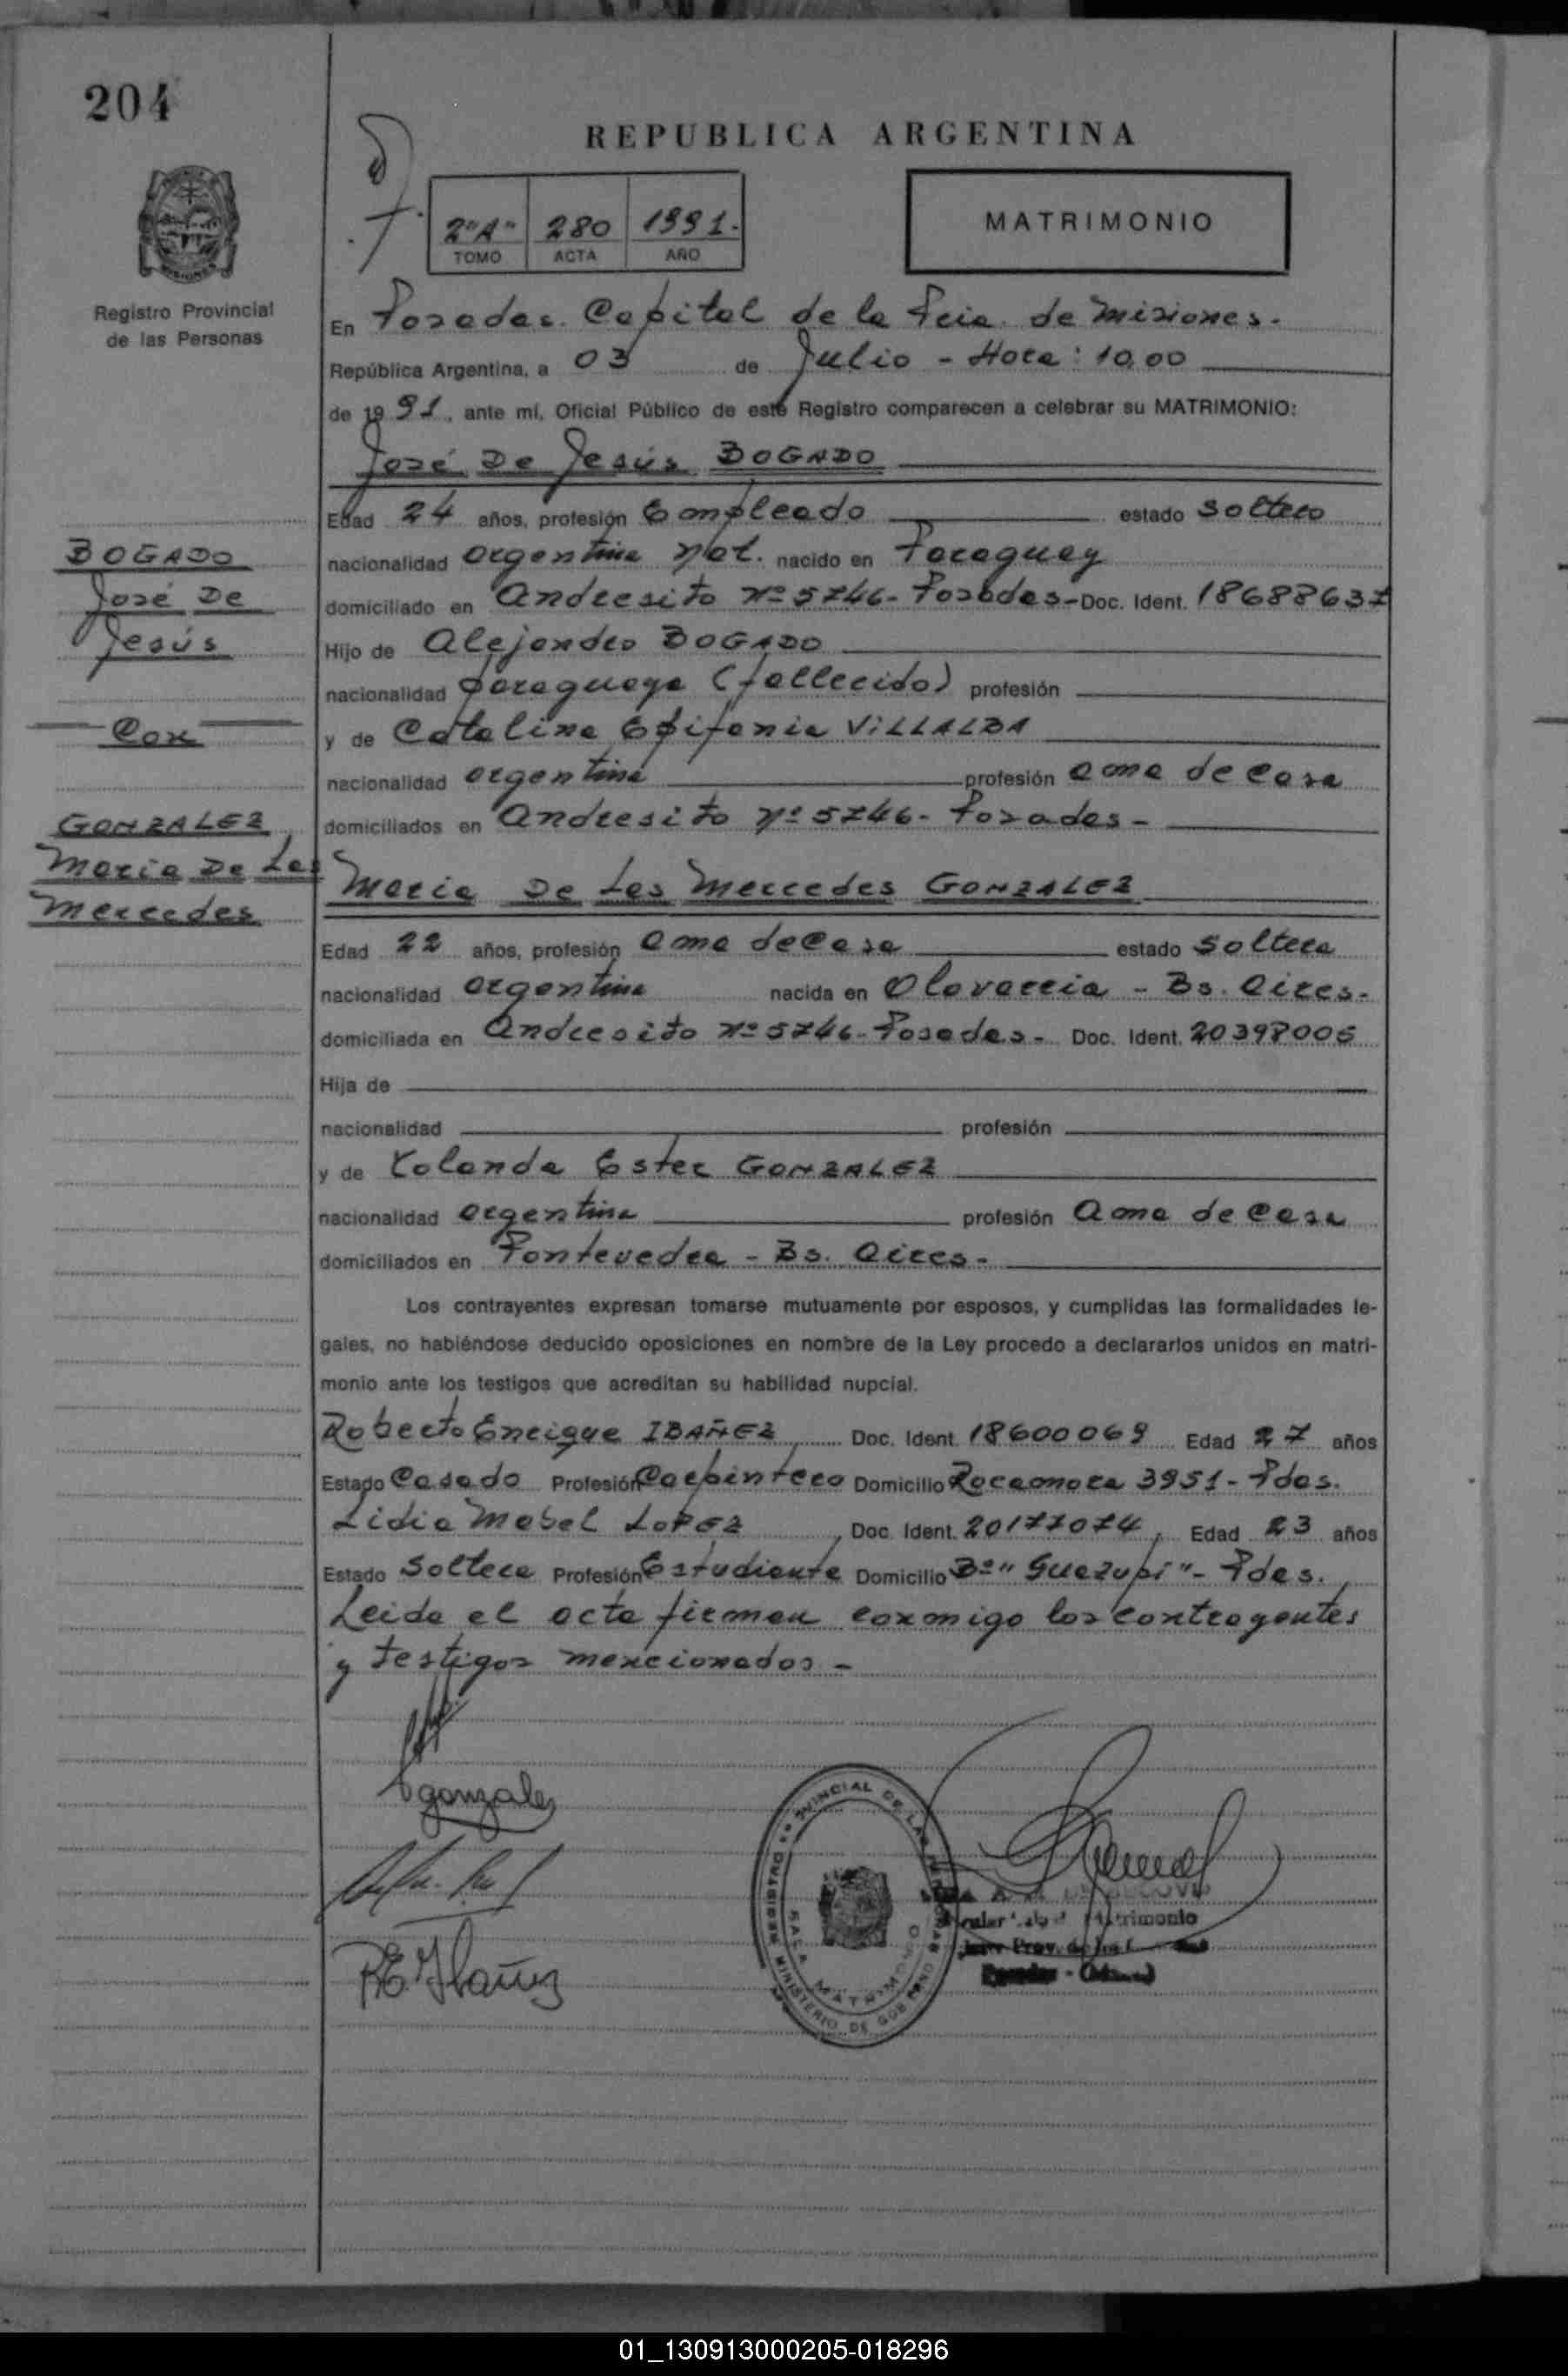 204
REPUBLICA ARGENTINA
2"A" 280 1991.
TOMO ACTA AÑO
MATRIMONIO
Registro Provincial
de las Personas
En Posadas. Capital de la Pcia. de Misiones.
República Argentina, a 03 de Julio - Hora: 10,00
de 19 91, ante mí, Oficial Público de este Registro comparecen a celebrar su MATRIMONIO:
José De Jesús BOGADO
Edad 24 años, profesión Empleado estado Soltero
nacionalidad argentina nat. nacido en Paraguay
domiciliado en Andresito Nº 5746- Posadas- Doc. Ident. 18688637
Hijo de Alejandro BOGADO
nacionalidad paraguaya (fallecido) profesión
y de Catalina Epifania VILLALBA
nacionalidad argentina profesión ama de casa
domiciliados en Andresito Nº 5746- Posadas-
BOGADO
José De
Jesús
Con
GONZALEZ
Maria De Las
Mercedes
Maria De Las Mercedes GONZALEZ
Edad 22 años, profesión ama de Casa estado Soltera
nacionalidad argentina nacida en Olavarria - Bs. Aires.
domiciliada en Andresito Nº 5746- Posadas- Doc. Ident. 20398006
Hija de
nacionalidad profesión
y de Yolanda Ester GONZALEZ
nacionalidad argentina profesión Ama de Casa
domiciliados en Pontevedra - Bs. Aires-
Los contrayentes expresan tomarse mutuamente por esposos, y cumplidas las formalidades le-
gales, no habiéndose deducido oposiciones en nombre de la Ley procedo a declararlos unidos en matri-
monio ante los testigos que acreditan su habilidad nupcial.
Roberto Enrique IBAÑEZ Doc. Ident. 18600069 Edad 27 años
Estado Casado Profesión Carpintero Domicilio Rocamora 3951- Pdas.
Lidia Mabel LOPEZ, Doc. Ident. 20177074, Edad 23 años
Estado Soltera Profesión Estudiante Domicilio Bº "Guazupi"- Pdas.
Leida el acta firman conmigo los contrayentes
y testigos mencionados-
gonzalez
R.E. Ibañez
REGISTRO PROVINCIAL DE LAS PERSONAS
SALA MATRIMONIO
MINISTERIO DE GOBIERNO
Matrimonio
01_130913000205-018296